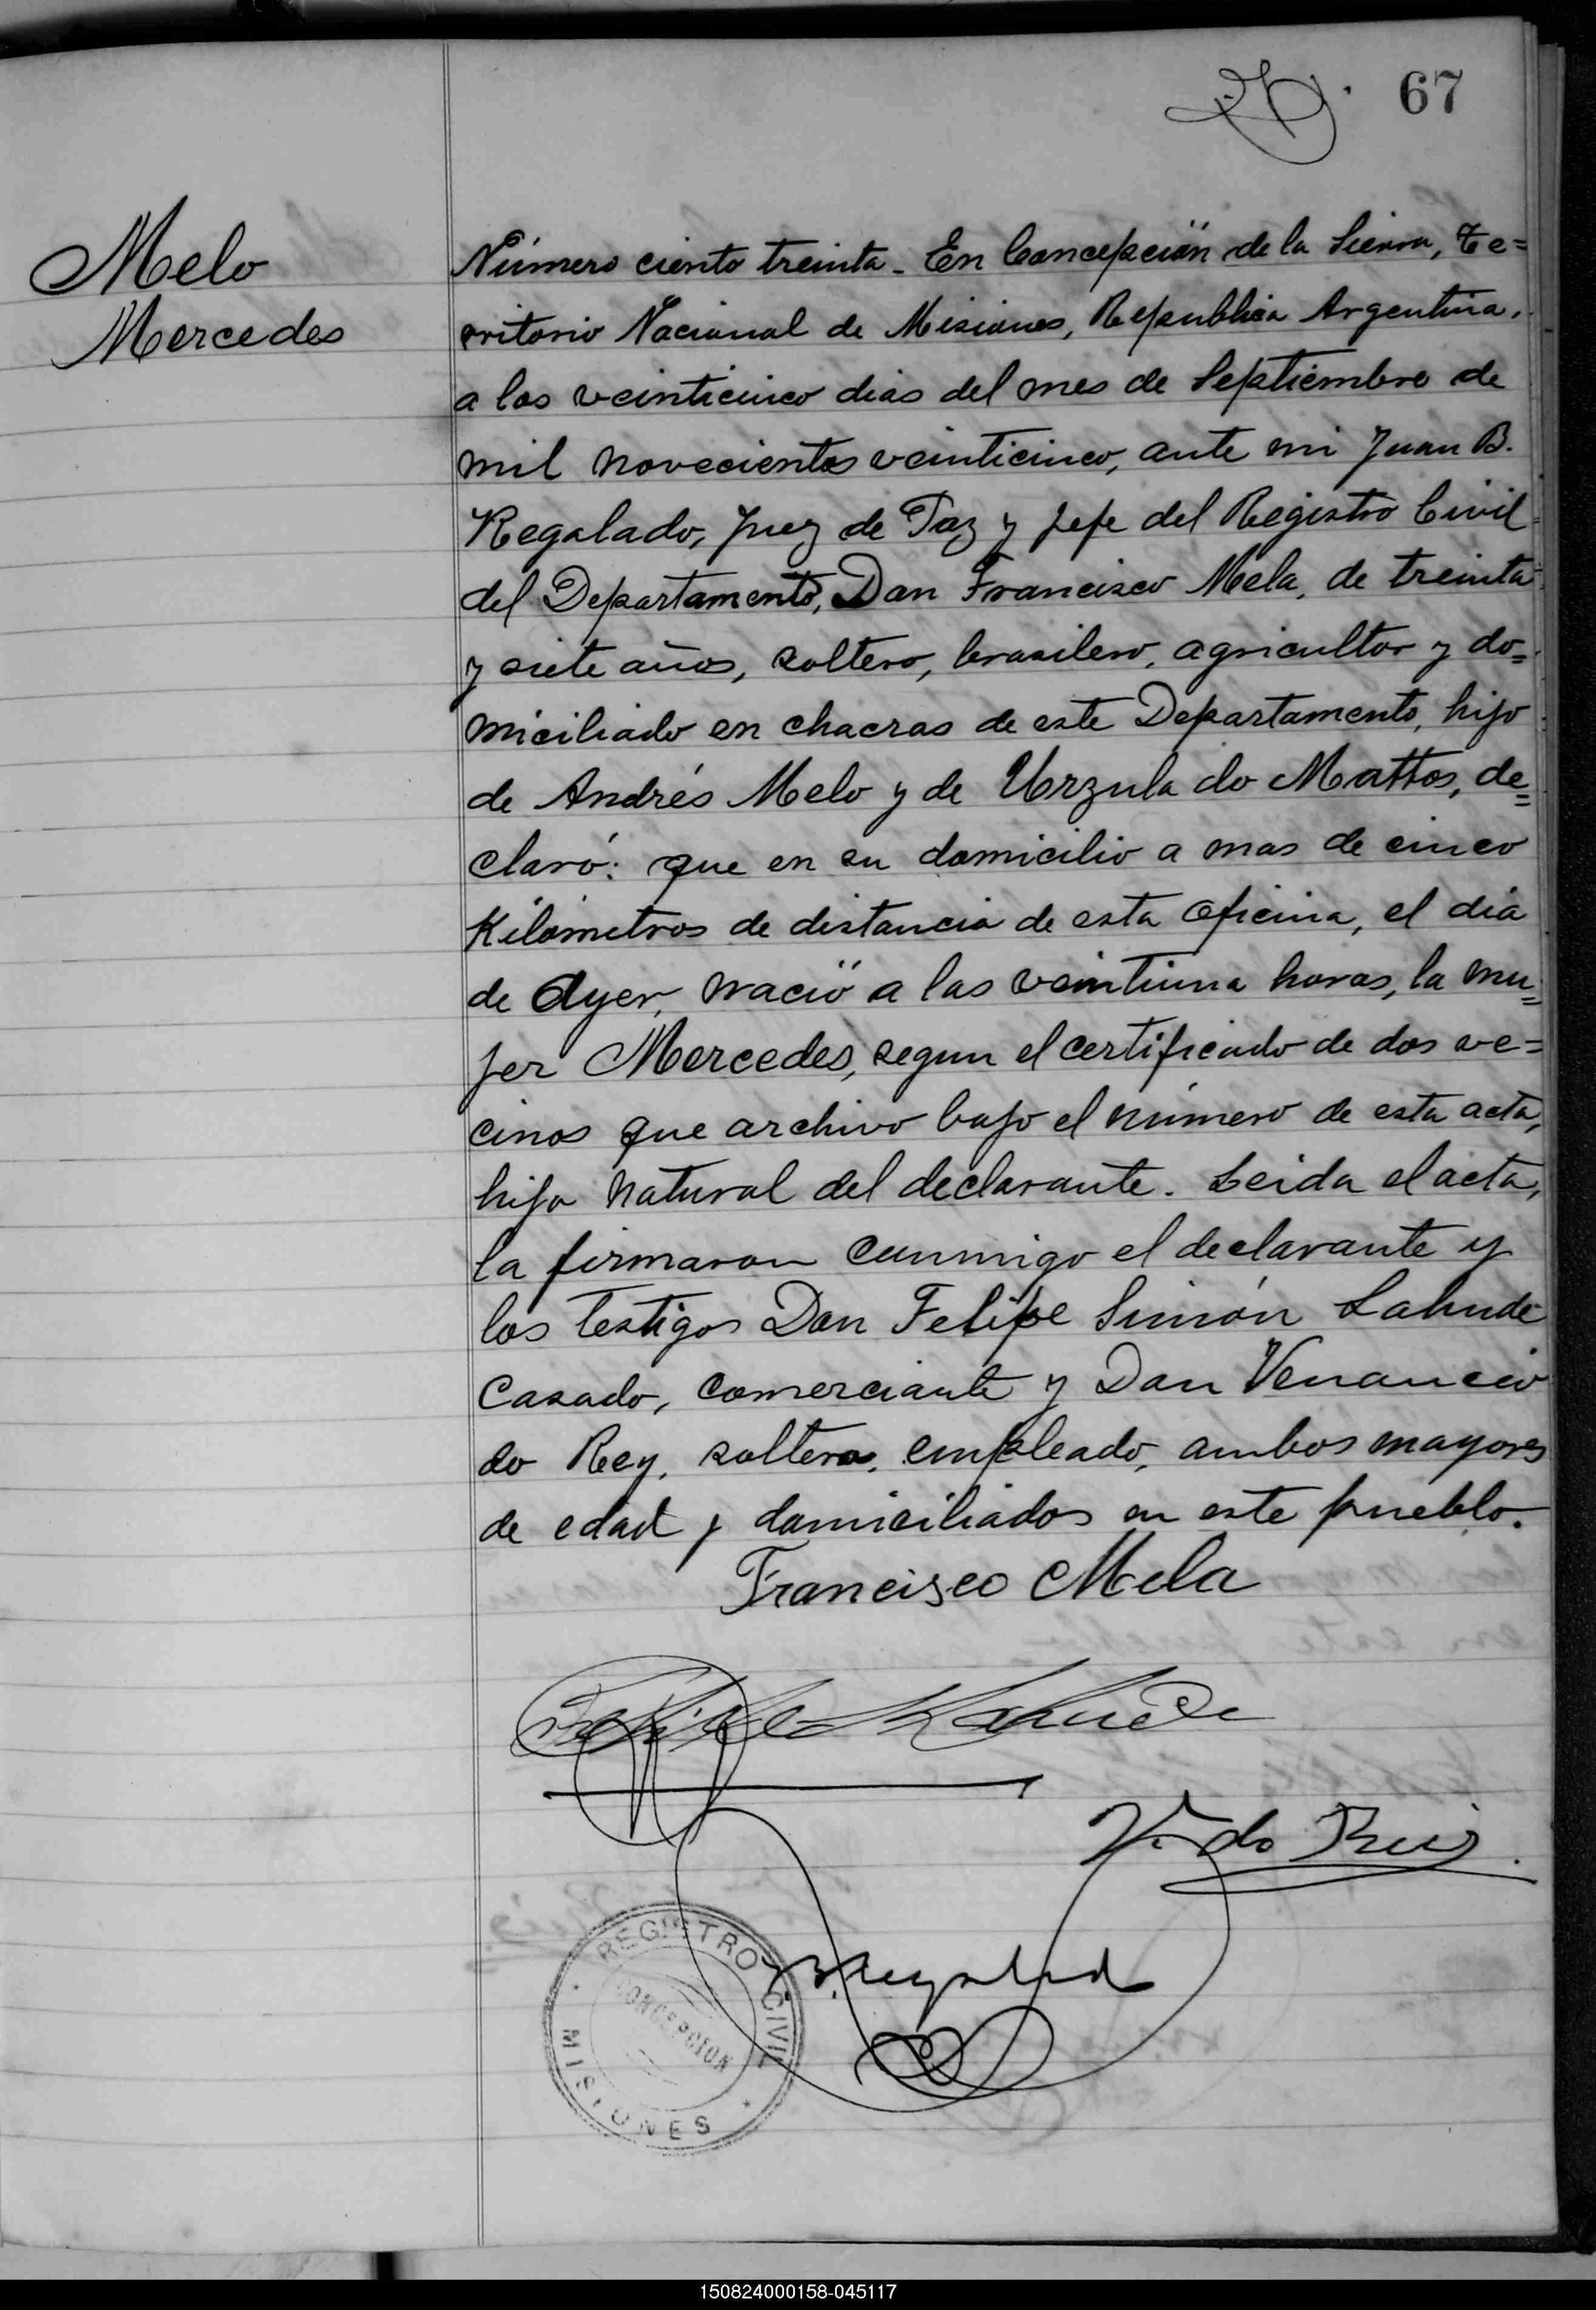 67
Melo
Mercedes
Número ciento treinta - En Concepción de la Sierra, Te=
rritorio Nacional de Misiones, Republica Argentina,
a los veinticinco dias del mes de Septiembre de
mil novecientos veinticinco, ante mi Juan B.
Regalado, Juez de Paz y Jefe del Registro Civil
del Departamento, Don Francisco Mela, de treinta
y siete años, soltero, brasilero, agricultor y do=
miciliado en chacras de este Departamento, hijo
de Andrés Melo y de Urzula do Mattos, de=
claró: que en su domicilio a mas de cinco
Kilómetros de distancia de esta Oficina, el dia
de Ayer, nació a las veintiuna horas, la mu=
jer Mercedes, segun el certificado de dos ve=
cinos que archivo bajo el número de esta acta,
hija natural del declarante. Leida el acta,
la firmaron conmigo el declarante y
los testigos Don Felipe Simón Lahude
Casado, comerciante y Don Venancio
do Rey, soltero, empleado, ambos mayores
de edad y domiciliados en este pueblo.
Francisco Mela
Felipe S Lahude
V. do Rey.
B. Regalado
REGISTRO CIVIL
CONCEPCION
MISIONES
150824000158-045117